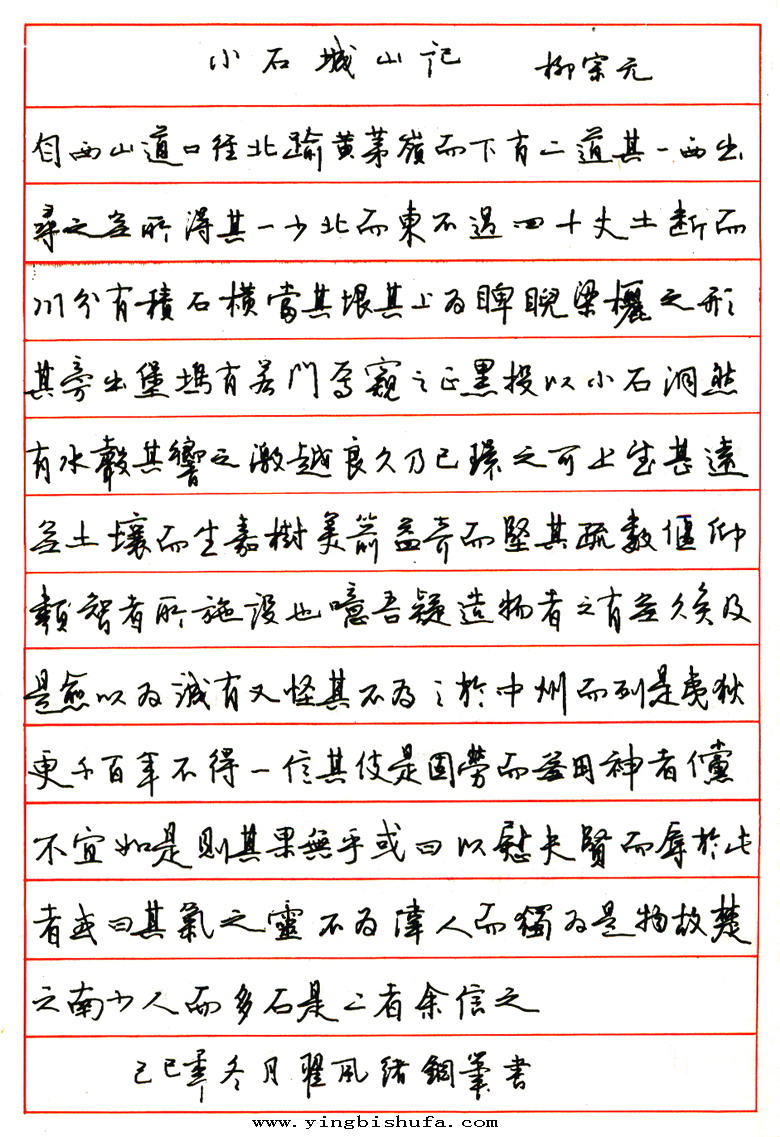 小石城山記 柳宗元
自西山道口徑北踰黄茅嶺而下有二道其一西出
尋之無所得其一少北而東不過四十丈土斷而
川分有積石横當其垠其上為睥睨梁欐之形
其旁出堡塢有若門焉窺之正黑投以小石洞然
有水聲其響之激越良久乃已環之可上望甚遠
無土壤而生嘉樹美箭益奇而堅其疏數偃仰
類智者所施設也噫吾疑造物者之有無久矣及
是愈以為誠有又怪其不為之於中州而列是夷狄
更千百年不得一售其伎是固勞而無用神者儻
不宜如是則其果無乎或曰以慰夫賢而辱於此
者或曰其氣之靈不為偉人而獨為是物故楚
之南少人而多石是二者余信之
己巳年冬月翟風緒鋼筆書
www.yingbishufa.com